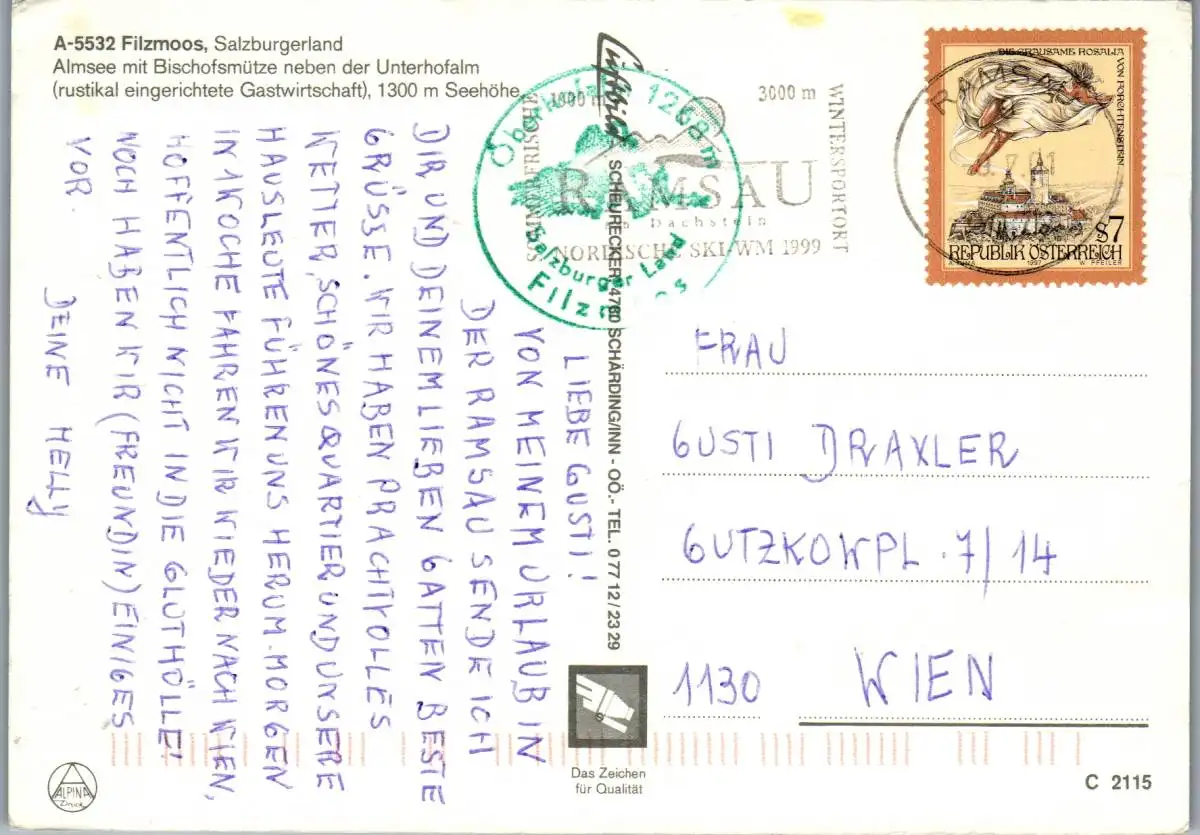 A-5532 Filzmoos, Salzburgerland
Almsee mit Bischofsmütze neben der Unterhofalm
(rustikal eingerichtete Gastwirtschaft), 1300 m Seehöhe
LIEBE GUSTI!
VON MEINEM URLAUB IN
DER RAMSAU SENDE ICH
DIR UND DEINEM LIEBEN GATTEN BESTE
GRÜSSE. WIR HABEN PRACHTVOLLES
WETTER, SCHÖNES QUARTIER UND UNSERE
HAUSLEUTE FÜHREN UNS HERUM. MORGEN
IN 1 WOCHE FAHREN WIR WIEDER NACH WIEN,
HOFFENTLICH NICHT IN DIE GLUTHÖLLE!
NOCH HABEN WIR (FREUNDIN) EINIGES
VOR.
DEINE HELLY
Luftbild SCHEURECKER 4780 SCHÄRDING/INN - OÖ.- TEL. 0 77 12 / 23 29
1268 m
Salzburger Land
SOMMERFRISCHE
1000 m
3000 m
WINTERSPORTORT
RAMSAU
am Dachstein
NORDISCHE SKI-WM 1999
RAMSAU
DIE GRAUSAME ROSALIA
VON FORCHTENSTEIN
S7
REPUBLIK ÖSTERREICH
1997
W. PFEILER
FRAU
GUSTI DRAXLER
GUTZKOWPL. 7/14
1130 WIEN
Das Zeichen
für Qualität
ALPINA
Druck
C 2115